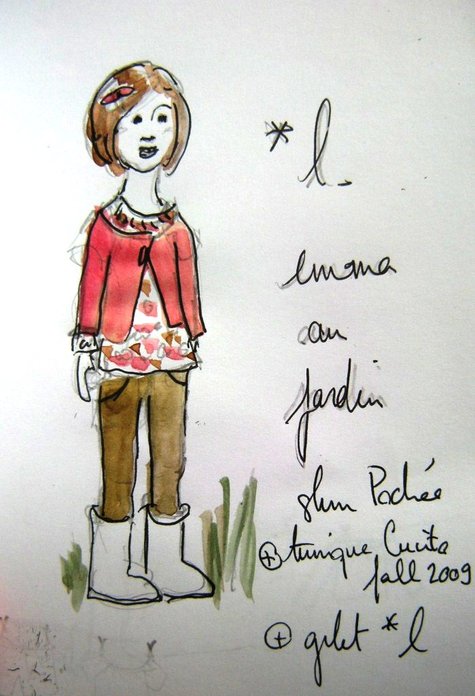 * l.
emma
au
jardin
slim Pochée
+ tunique Cucita
fall 2009
+ gilet * l